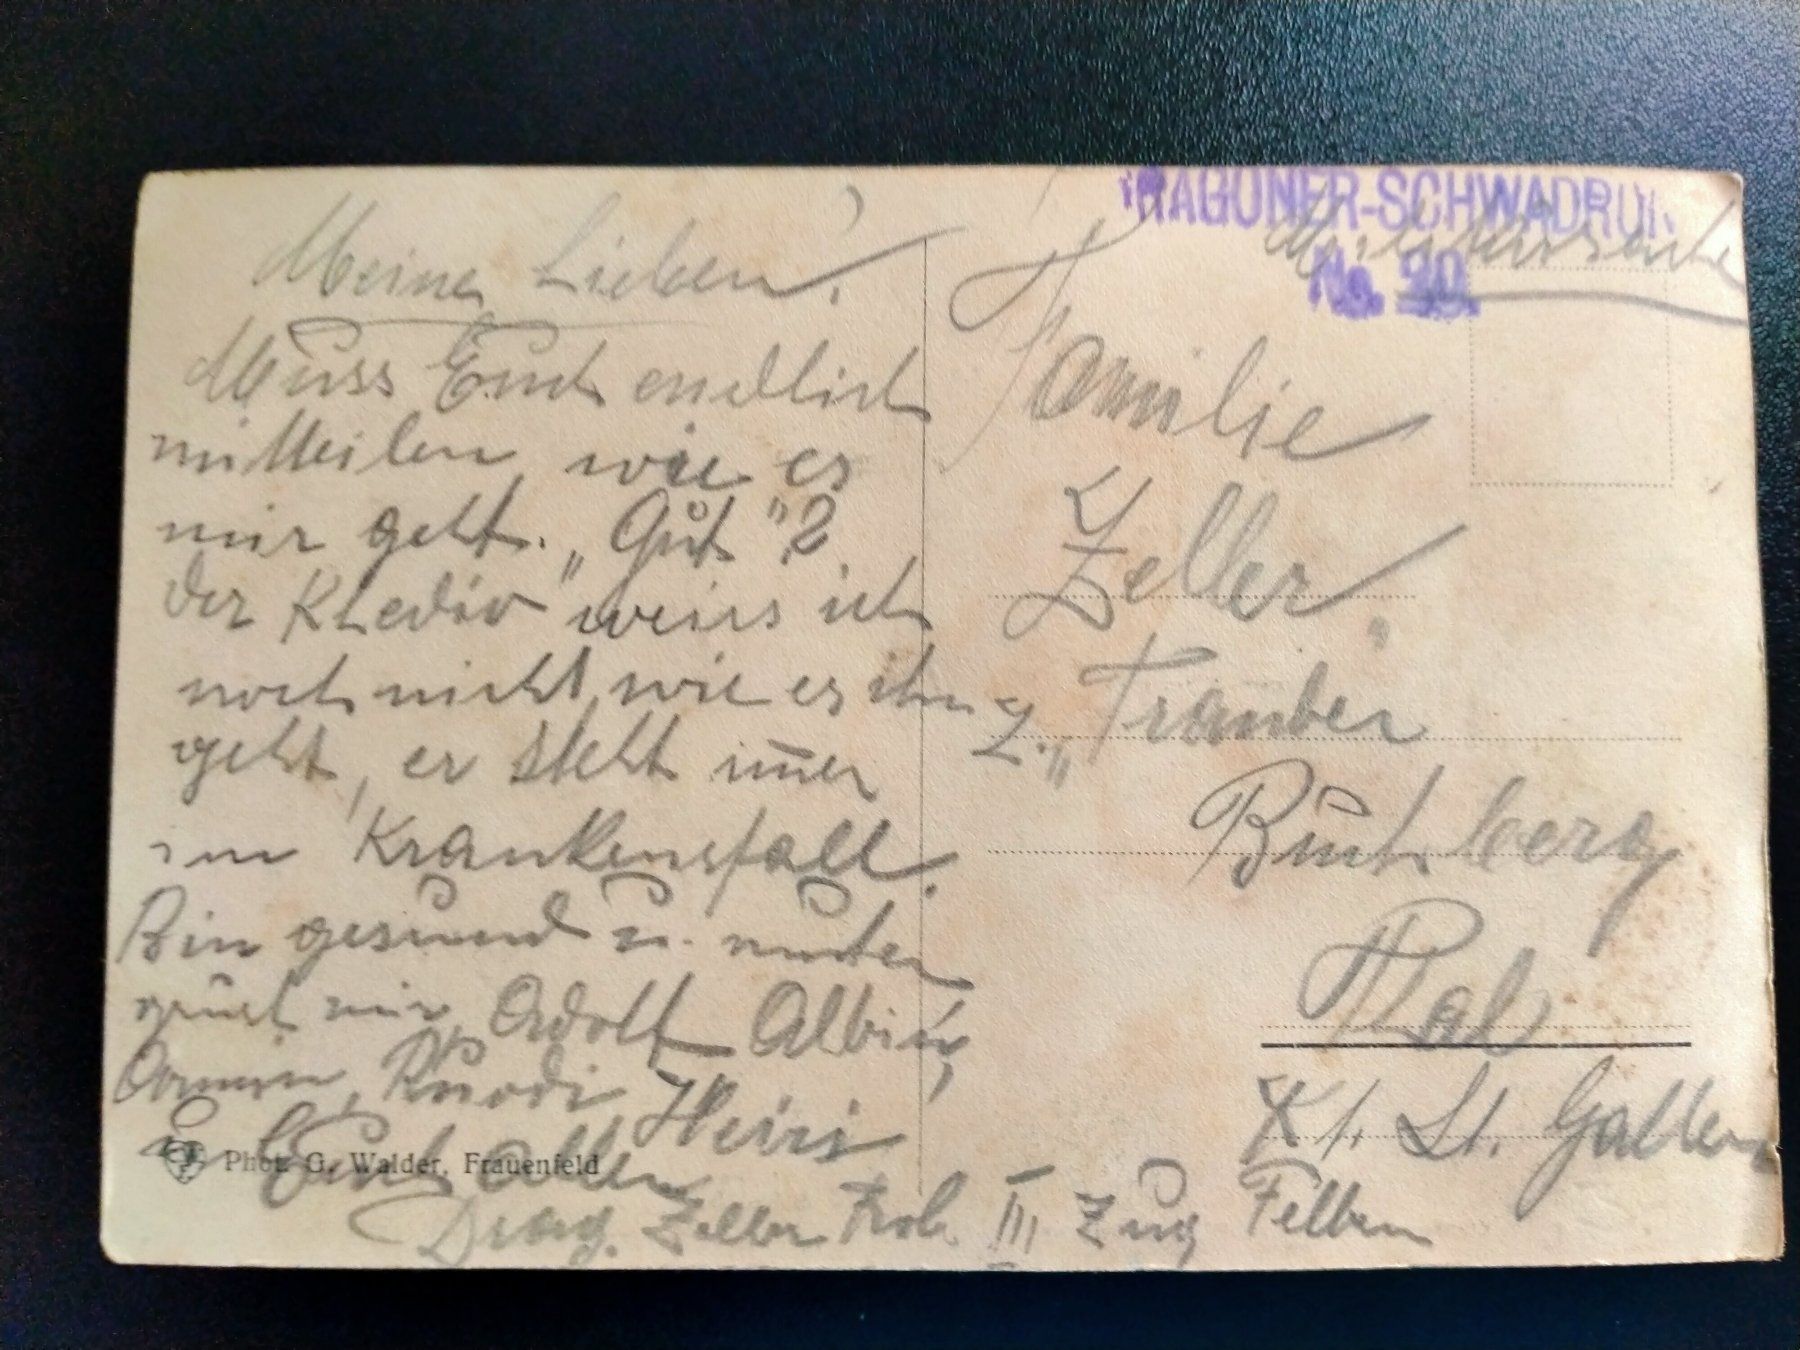 Meine Lieben!
Muss Euch endlich
mitteilen wie es
mir geht. „Gut"?
der Khediv" weiss ich
noch nicht, wie es ihm
geht, er steht im̅er
im Krankenstall.
Bin gesund u. munter
grüsst mir, Adolf Albin,
Armin, Ruodi, Heiri
Euch allen
Drag. Zeller Rob. III Zug Felben
Phot. G. Walder, Frauenfeld
DRAGONER-SCHWADRON
No. 20.
Militärsache
Familie
Zeller,
z. „Trauben"
Buchberg
Thal
Kt. St. Gallen